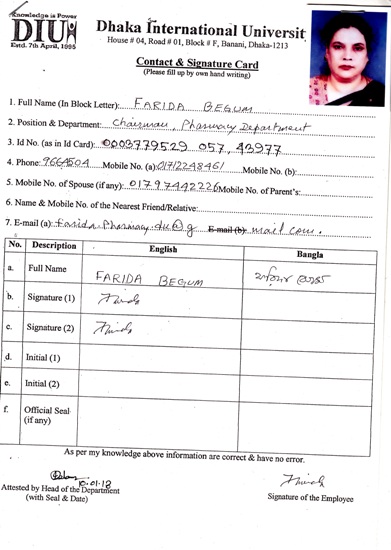 Knowledge is Power
DIU
Estd. 7th April, 1995
Dhaka International University
House # 04, Road # 01, Block # F, Banani, Dhaka-1213
Contact & Signature Card
(Please fill up by own hand writing)
1. Full Name (In Block Letter): FARIDA BEGUM
2. Position & Department: Chairman, Pharmacy Department
3. Id No. (as in Id Card): 0003779529 057, 43977
4. Phone: 9664504 Mobile No. (a): 01712248461 Mobile No. (b):
5. Mobile No. of Spouse (if any): 01797442226 Mobile No. of Parent's:
6. Name & Mobile No. of the Nearest Friend/Relative:
7. E-mail (a): farida.pharmacy.du@g E-mail (b) mail com.
No. Description English Bangla
a. Full Name FARIDA BEGUM
b. Signature (1)
c. Signature (2)
d. Initial (1)
e. Initial (2)
f. Official Seal
(if any)
As per my knowledge above information are correct & have no error.
10.01.18
Attested by Head of the Department
(with Seal & Date)
Signature of the Employee